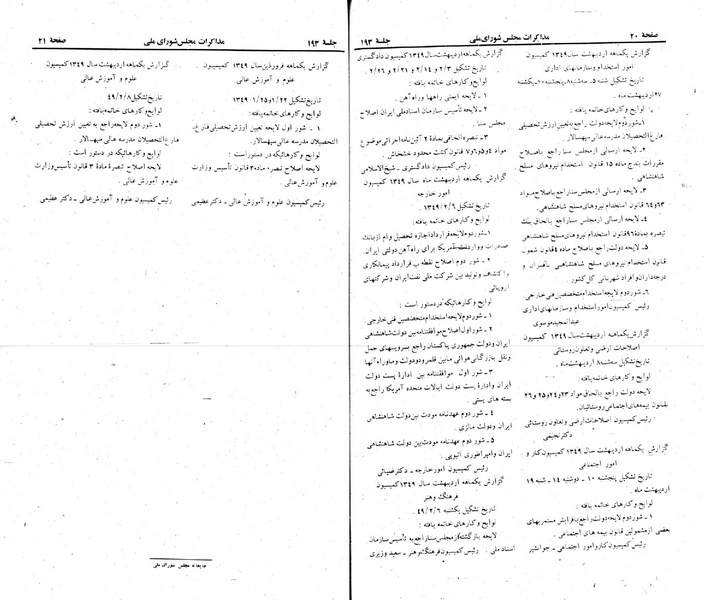 صفحهٔ ۲۰
مذاکرات مجلس شورای ملی
جلسهٔ ۱۹۳
گزارش یکماهه اردیبهشت سال ۱۳۴۹ کمیسیون
امور استخدام و سازمانهای اداری
تاریخ تشکیل شنبه ۵ـ سه‌شنبه ۸ـ پنجشنبه ۱۰ـ یکشنبه
۲۷ اردیبهشت ماه.
لوایح و کارهای خاتمه یافته:
۱ـ شور دوم لایحه دولت راجع به تعیین ارزش تحصیلی
فارغ‌التحصیلان مدرسه عالی سپهسالار.
۲ـ لایحه ارسالی از مجلس سنا راجع باصلاح
مقررات بند ج ماده ۱۵ قانون استخدام نیروهای مسلح
شاهنشاهی.
۳ـ لایحه ارسالی از مجلس سنا راجع باصلاح مواد
۱۳ و ۶۴ قانون استخدام نیروهای مسلح شاهنشاهی.
۴ـ لایحه ارسالی از مجلس سنا راجع بالحاق یک
تبصره بماده ۹۶ قانون استخدام نیروهای مسلح شاهنشاهی
۵ـ لایحه دولت راجع باصلاح ماده ۴ قانون شمول
قانون استخدام نیروهای مسلح شاهنشاهی بافسران و
درجه‌داران و افراد شهربانی کل کشور.
۶ـ شور دوم لایحه استخدام متخصصین فنی خارجی.
رئیس کمیسیون امور استخدام و سازمانهای اداری
عبدالمجید موسوی
گزارش یکماهه اردیبهشت سال ۱۳۴۹ کمیسیون
اصلاحات ارضی و تعاون روستائی
تاریخ تشکیل سه‌شنبه ۸ اردیبهشت ماه.
لوایح و کارهای خاتمه یافته:
لایحه دولت راجع بالحاق مواد ۲۳ و ۲۴ و ۲۵ و ۲۶
بقانون بیمه‌های اجتماعی روستائیان.
رئیس کمیسیون اصلاحات ارضی و تعاون روستائی
گزارش یکماهه اردیبهشت سال ۱۳۴۹ کمیسیون کار و
امور اجتماعی.
تاریخ تشکیل پنجشنبه ۱۰ ـ دوشنبه ۱۴ ـ شنبه ۱۹
اردیبهشت ماه.
لوایح و کارهای خاتمه یافته:
۱ـ شور دوم لایحه دولت راجع بافزایش مستمریهای
بعضی از مشمولین قانون بیمه‌های اجتماعی.
رئیس کمیسیون کار و امور اجتماعی ـ جوانشیر
گزارش یکماهه اردیبهشت سال ۱۳۴۹ کمیسیون دادگستری
تاریخ تشکیل ۲/۳ و ۲/۱۴ و ۲/۲۱ و ۲/۲۶.
لوایح و کارهای خاتمه یافته:
۱ـ لایحه ایمنی راهها و راه‌آهن.
۲ـ لایحه تأسیس سازمان اسناد ملی ایران اصلاح
مجلس سنا.
۳ـ تبصره الحاقی بماده ۲ آئین‌نامه اجرائی موضوع
مواد ۴ و ۵ و ۶ و ۷ قانون کشت محدود خشخاش.
رئیس کمیسیون دادگستری ـ شیخ‌الاسلامی
گزارش یکماهه اردیبهشت ماه سال ۱۳۴۹ کمیسیون
امور خارجه
تاریخ تشکیل ۱۳۴۹/۲/۹.
لوایح و کارهای خاتمه یافته:
۱ـ شور دوم لایحه قرارداد اجازه تحصیل وام از بانک
صادرات و واردات آمریکا برای راه‌آهن دولتی ایران.
۲ـ شور دوم اصلاح نقطه ب قرارداد پیمانکاری
و اکتشاف و تولید بین شرکت ملی نفت ایران و شرکتهای
اروپائی
لوایح و کارهائیکه در دستور است:
۱ـ شور دوم لایحه استخدام متخصصین فنی خارجی.
۲ـ شور اول اصلاح موافقتنامه بین دولت شاهنشاهی
ایران و دولت جمهوری پاکستان راجع بسرویسهای حمل
و نقل بازرگانی هوائی مابین قلمرو دو دولت و ماوراء آنها
۳ـ شور اول موافقتنامه بین ادارهٔ پست دولت
ایران و ادارهٔ پست دولت ایالات متحده آمریکا راجع به
بسته‌های پستی.
۴ـ شور دوم عهدنامه مودت بین دولت شاهنشاهی
ایران و دولت مالزی.
۵ـ شور دوم عهدنامه مودت بین دولت شاهنشاهی
ایران و امپراطوری اتیوپی.
رئیس کمیسیون امور خارجه ـ دکتر ضیائی
گزارش یکماهه اردیبهشت سال ۱۳۴۹ کمیسیون
فرهنگ و هنر
تاریخ تشکیل یکشنبه ۴۹/۲/۶.
لوایح و کارهای خاتمه یافته:
لایحه بازگشته از مجلس سنا راجع به تأسیس سازمان
اسناد ملی. رئیس کمیسیون فرهنگ و هنر ـ سعید وزیری
جلسهٔ ۱۹۳
مذاکرات مجلس شورای ملی
صفحهٔ ۲۱
گزارش یکماهه فروردین سال ۱۳۴۹ کمیسیون
علوم و آموزش عالی.
تاریخ تشکیل ۱/۲۲ و ۱۳۴۹/۱/۲۵
لوایح و کارهای خاتمه یافته:
۱ ـ شور اول لایحه تعیین ارزش تحصیلی فارغ‌ـ
التحصیلان مدرسه عالی سپهسالار.
لوایح و کارهائیکه در دستور است:
لایحه اصلاح تبصره ماده ۳ قانون تأسیس وزارت
علوم و آموزش عالی.
رئیس کمیسیون علوم و آموزش عالی ـ دکتر عظیمی
گزارش یکماهه اردیبهشت سال ۱۳۴۹ کمیسیون
علوم و آموزش عالی
تاریخ تشکیل ۴۹/۲/۸
لوایح و کارهای خاتمه یافته:
۱ـ شور دوم لایحه راجع به تعیین ارزش تحصیلی
فارغ‌التحصیلان مدرسه عالی سپهسالار.
لوایح و کارهائیکه در دستور است:
لایحه اصلاح تبصرهٔ ماده ۳ قانون تأسیس وزارت
علوم و آموزش عالی.
رئیس کمیسیون علوم و آموزش عالی ـ دکتر عظیمی
چاپخانه مجلس شورای ملی